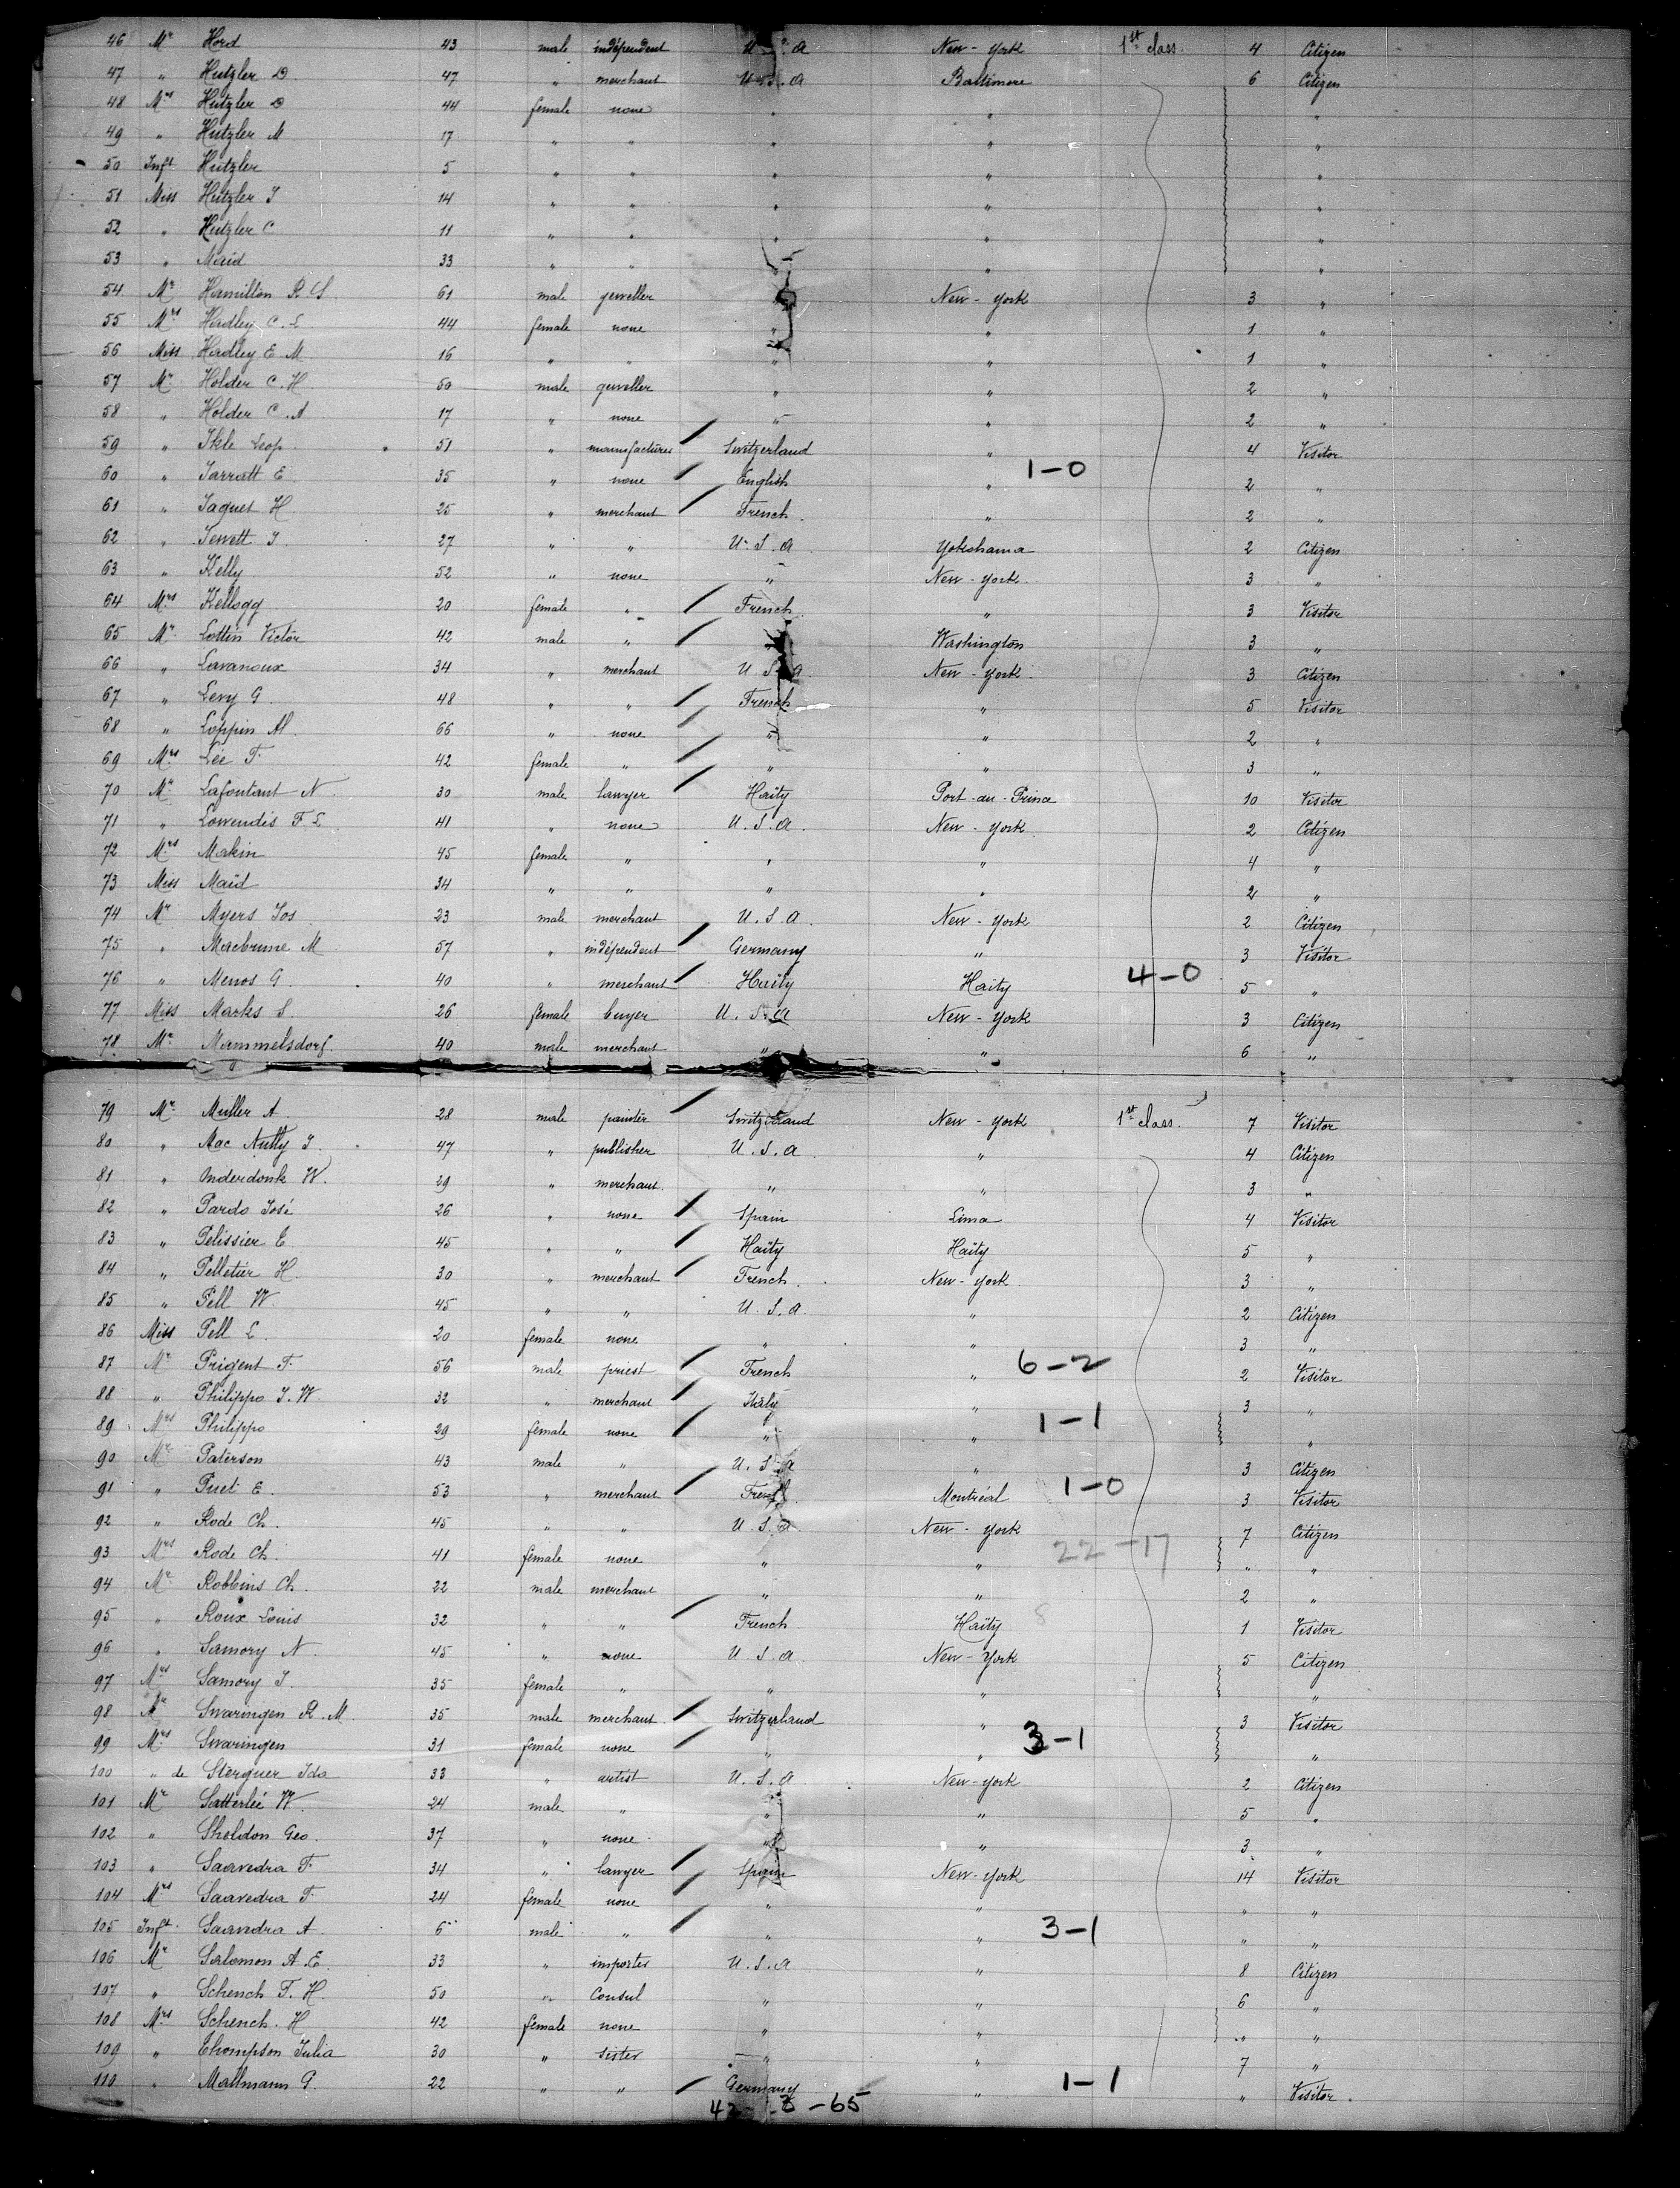 46 Mr Hord 43 male indépendent U.S.A New-York 1st class. 4 Citizen
47 " Hutzler D 47 " merchant U.S.A Baltimore 6 Citizen
48 Mrs Hutzler D 44 female none " " "
49 " Hutzler M 17 " " " " "
50 Inft Hutzler 5 " " " " "
51 Miss Hutzler J 14 " " " " "
52 " Hutzler C 11 " " " " "
53 " Maid 33 " " " " "
54 Mr Hamilton R S 61 male jeweller New-York 3 "
55 Mrs Hadley C. L 44 female none " " 1 "
56 Miss Hadley E M 16 " " " " 1 "
57 Mr Holder C. H. 50 male jeweller " " 2 "
58 " Holder C. A 17 " none " " 2 "
59 " Ikle Leop. 51 " manufacturer Switzerland " 4 Visitor
60 " Jarratt E 35 " none English " 1-0 2 "
61 " Jaquet H 25 " merchant French " 2 "
62 " Jewett J. 27 " " U.S.A Yokohama 2 Citizen
63 " Kelly 52 " none " New-York 3 "
64 Mrs Kellogg 20 female " French " 3 Visitor
65 Mr Lottin Victor 42 male " Washington 3 "
66 " Lavanoux 34 " merchant U.S.A. New-York 3 Citizen
67 " Levy G 48 " " French " 5 Visitor
68 " Loppin Al. 66 " none " " 2 "
69 Mrs Lée F. 42 female " " " 3 "
70 Mr Lafontant N. 30 male lawyer Haïty Port-au-Prince 10 Visitor
71 " Lowendis F L 41 " none U.S.A. New-York 2 Citizen
72 Mrs Makin 45 female " " " 4 "
73 Miss Maid 34 " " " " 2 "
74 Mr Myers Jos 23 male merchant U.S.A New-York 2 Citizen
75 " Macbrune M 57 " indépendent Germany " 3 Visitor
76 " Menos G. 40 " merchant Haïty Haïty 4-0 5 "
77 Miss Marks S 26 female buyer U.S.A New-York 3 Citizen
78 Mr Mammelsdorf. 40 male merchant " " 6 "
79 Mr Muller A 28 male painter Switzerland New-York 1st class. 7 Visitor
80 " Mac Nutty J. 47 " publisher U.S.A " 4 Citizen
81 " Onderdonk W. 29 " merchant " " 3 "
82 " Pardo José 26 " none Spain Lima 4 Visitor
83 " Pelissier E 45 " " Haïty Haïty 5 "
84 " Pelletier H. 30 " merchant French New-York 3 "
85 " Pell W. 45 " " U.S.A. " 2 Citizen
86 Miss Pell L. 20 female none " " 3 "
87 Mr Prigent F. 56 male priest French " 6-2 2 Visitor
88 " Philippo J. W. 32 " merchant Italy " 3 "
89 Mrs Philippo 29 female none " " 1-1 "
90 Mr Paterson 43 male " U.S.A " 3 Citizen
91 " Puet E 53 " merchant French Montréal 1-0 3 Visitor
92 " Rode Ch. 45 " " U.S.A New-York 7 Citizen
93 Mrs Rode Ch. 41 female none " " 22-17 " "
94 Mr Robbins Ch. 22 male merchant " " 2 "
95 " Roux Louis 32 " " French Haïty 1 Visitor
96 " Samory N. 45 " none U.S.A New-York 5 Citizen
97 Mrs Samory J. 35 female " " " "
98 Mr Swaringen R. M. 35 male merchant Switzerland " 3 Visitor
99 Mrs Swaringen 31 female none " " 3-1 "
100 " de Sterquer Ida 33 " artist U.S.A New-York 2 Citizen
101 Mr Satterlée W. 24 male " " " 5 "
102 " Sheldon Geo. 37 " none " " 3 "
103 " Saavedra F. 34 " lawyer Spain New-York 14 Visitor
104 Mrs Saavedra F. 24 female none " " " "
105 Inft. Saavedra A. 6 male " " " 3-1 " "
106 Mr Salomon A. E. 33 " importer U.S.A " 8 Citizen
107 " Schench F. H. 50 " Consul " " 6 "
108 Mrs Schench. H 42 female none " " " "
109 " Thompson Julia 30 " sister " " 7 "
110 " Mallmann G. 22 " " Germany " 1-1 " Visitor.
-65